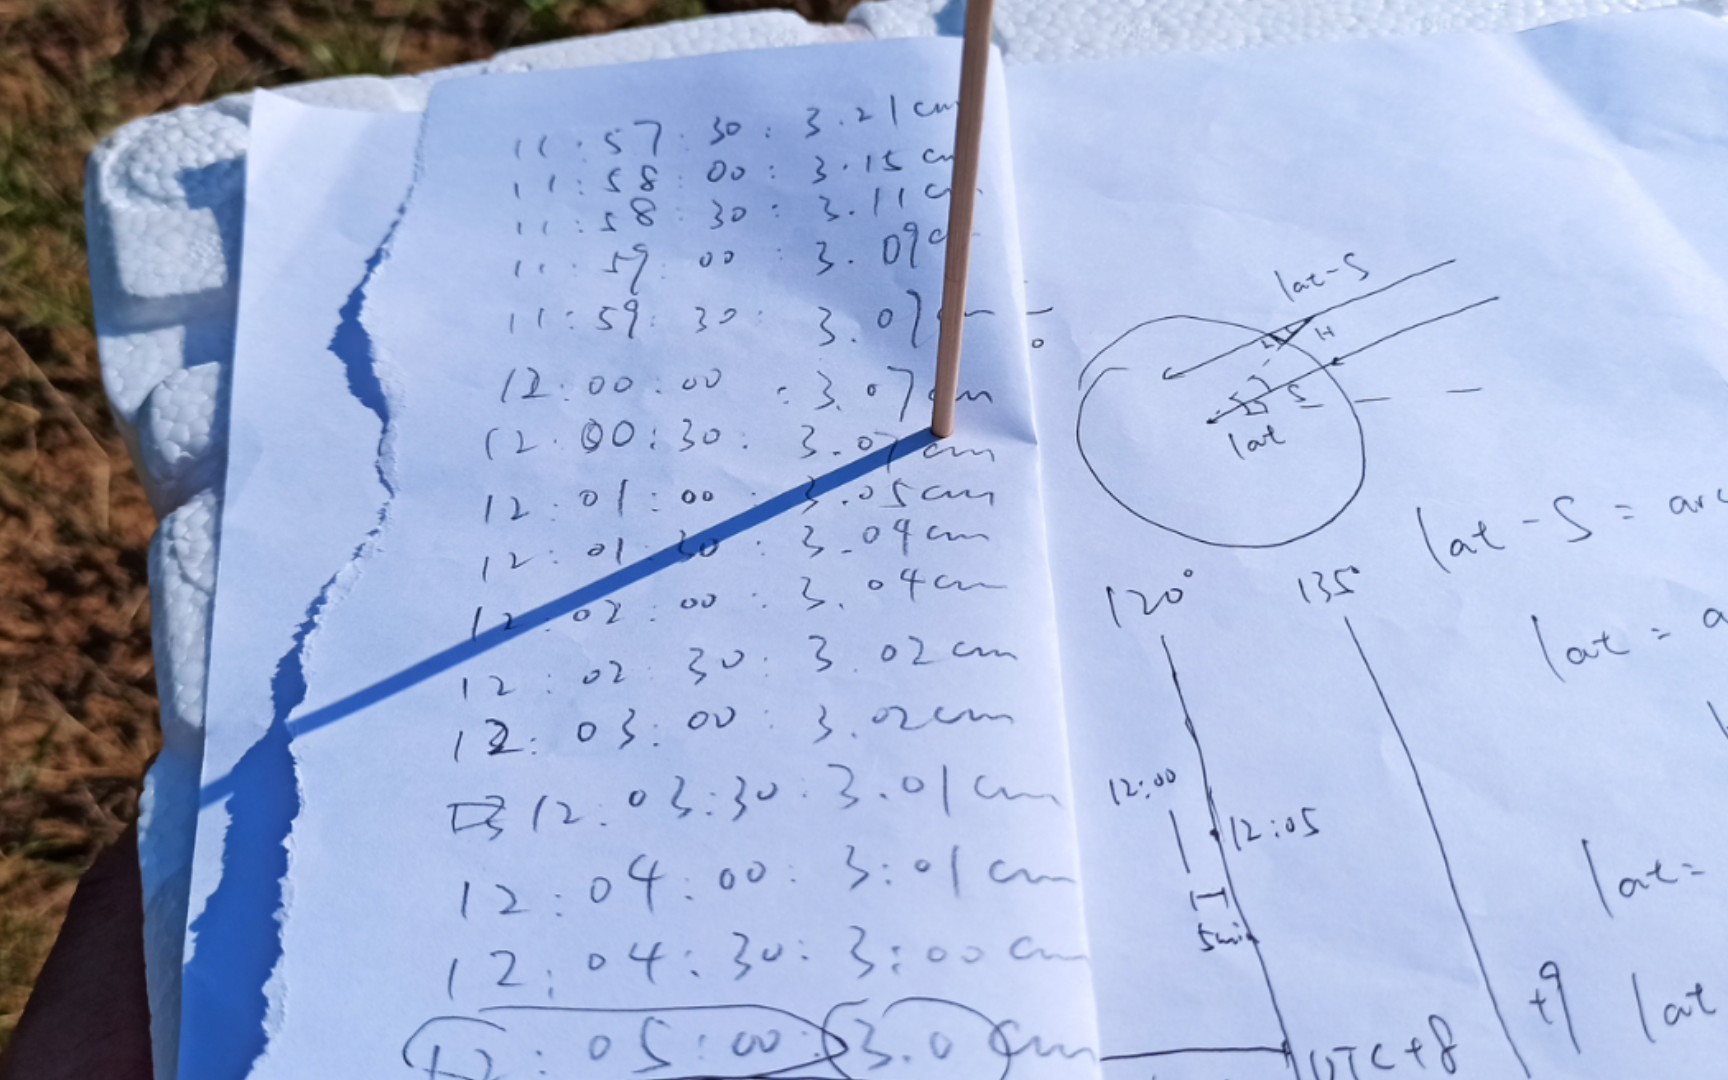 11:57:30:3.21cm
11:58:00:3.15cm
11:58:30:3.11cm
11:59:00:3.09c
11:59:30:3.07cm
12:00:00:3.07cm
12:00:30:3.07cm
12:01:00:3.05cm
12:01:30:3.04cm
12:02:00:3.04cm
12:02:30:3.02cm
12:03:00:3.02cm
12:03:30:3.01cm
12:04:00:3:01cm
12:04:30:3:00cm
12:05:00:3.0cm
lat-S
H
S
lat
lat-S = arc
lat = a
120° 135°
12:00
12:05
5min
lat=
+9 lat
UTC+8